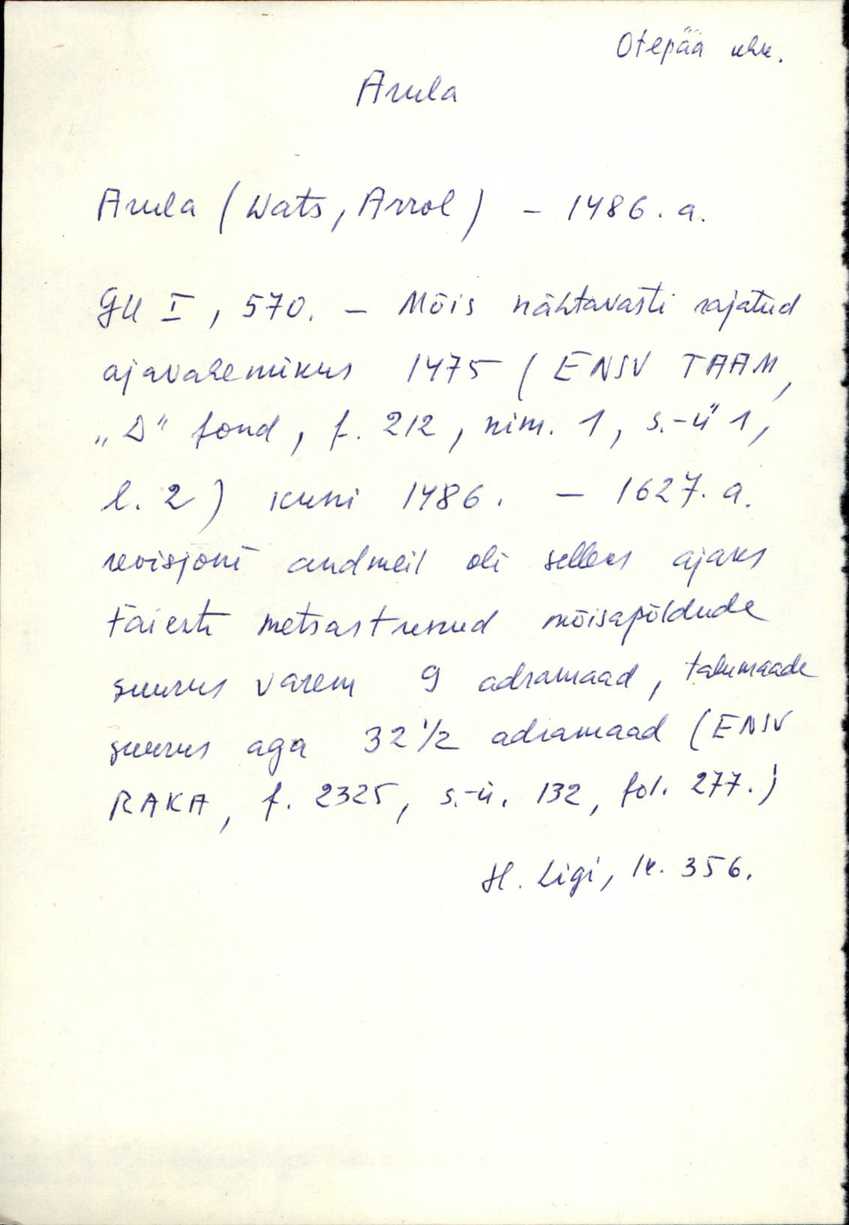 Otepää khk.
Arula
Arula (Wats, Arrol) – 1486. a.
GU I, 570. – Mõis nähtavasti rajatud
ajavahemikus 1475 (ENSV TAAM,
„D" fond, f. 212, nim. 1, s.-ü 1,
l. 2) kuni 1486. – 1627. a.
revisjoni andmeil oli selleks ajaks
täiesti metsastunud mõisapõldude
suurus varem 9 adramaad, talumaade
suurus aga 32 1/2 adramaad (ENSV
RAKA, f. 2325, s.-ü. 132, fol. 277.)
H. Ligi, lk. 356.